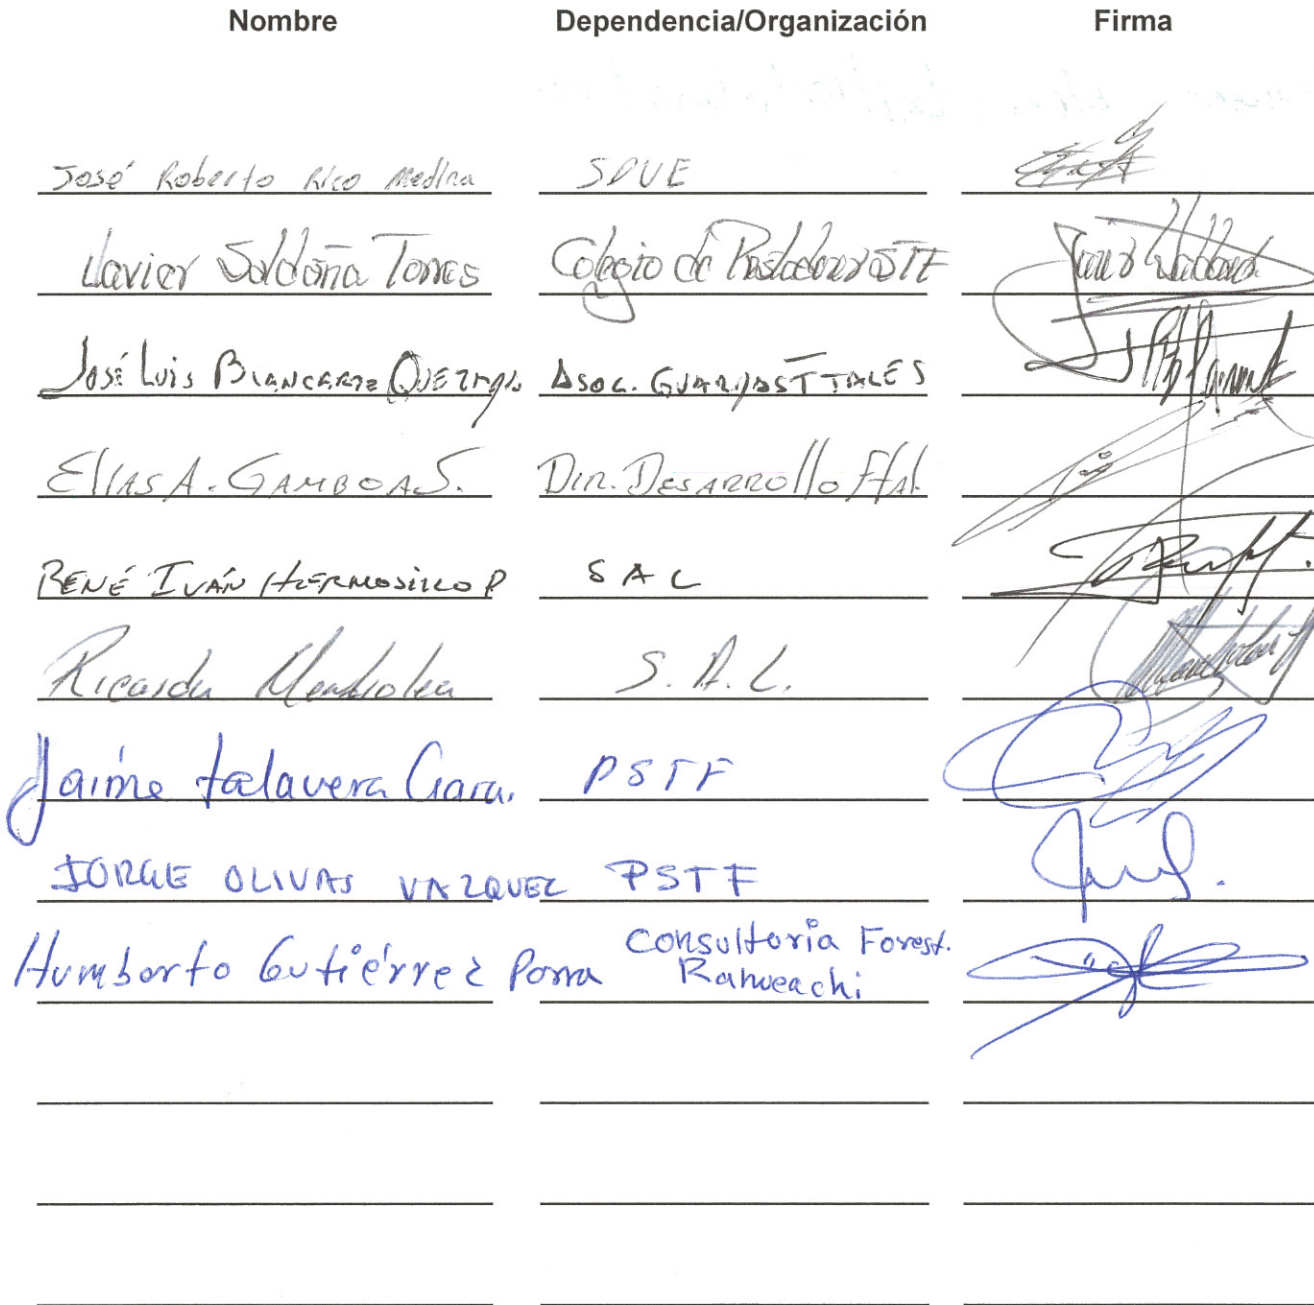 Nombre Dependencia/Organización Firma
José Roberto Rico Medina SDUE
Javier Saldaña Torres Colegio de STF
José Luis Blancarte Asoc. FTALES
Elías A. Gamboa S. Dir. Desarrollo Ftal.
René Iván Hermosillo P SAC
Ricardo Mendiolea S.A.C.
Jaime Talavera PSTF
JORGE OLIVAS VAZQUEZ PSTF
Humberto Gutiérrez Porra Consultoria Forest.
Rahueachi